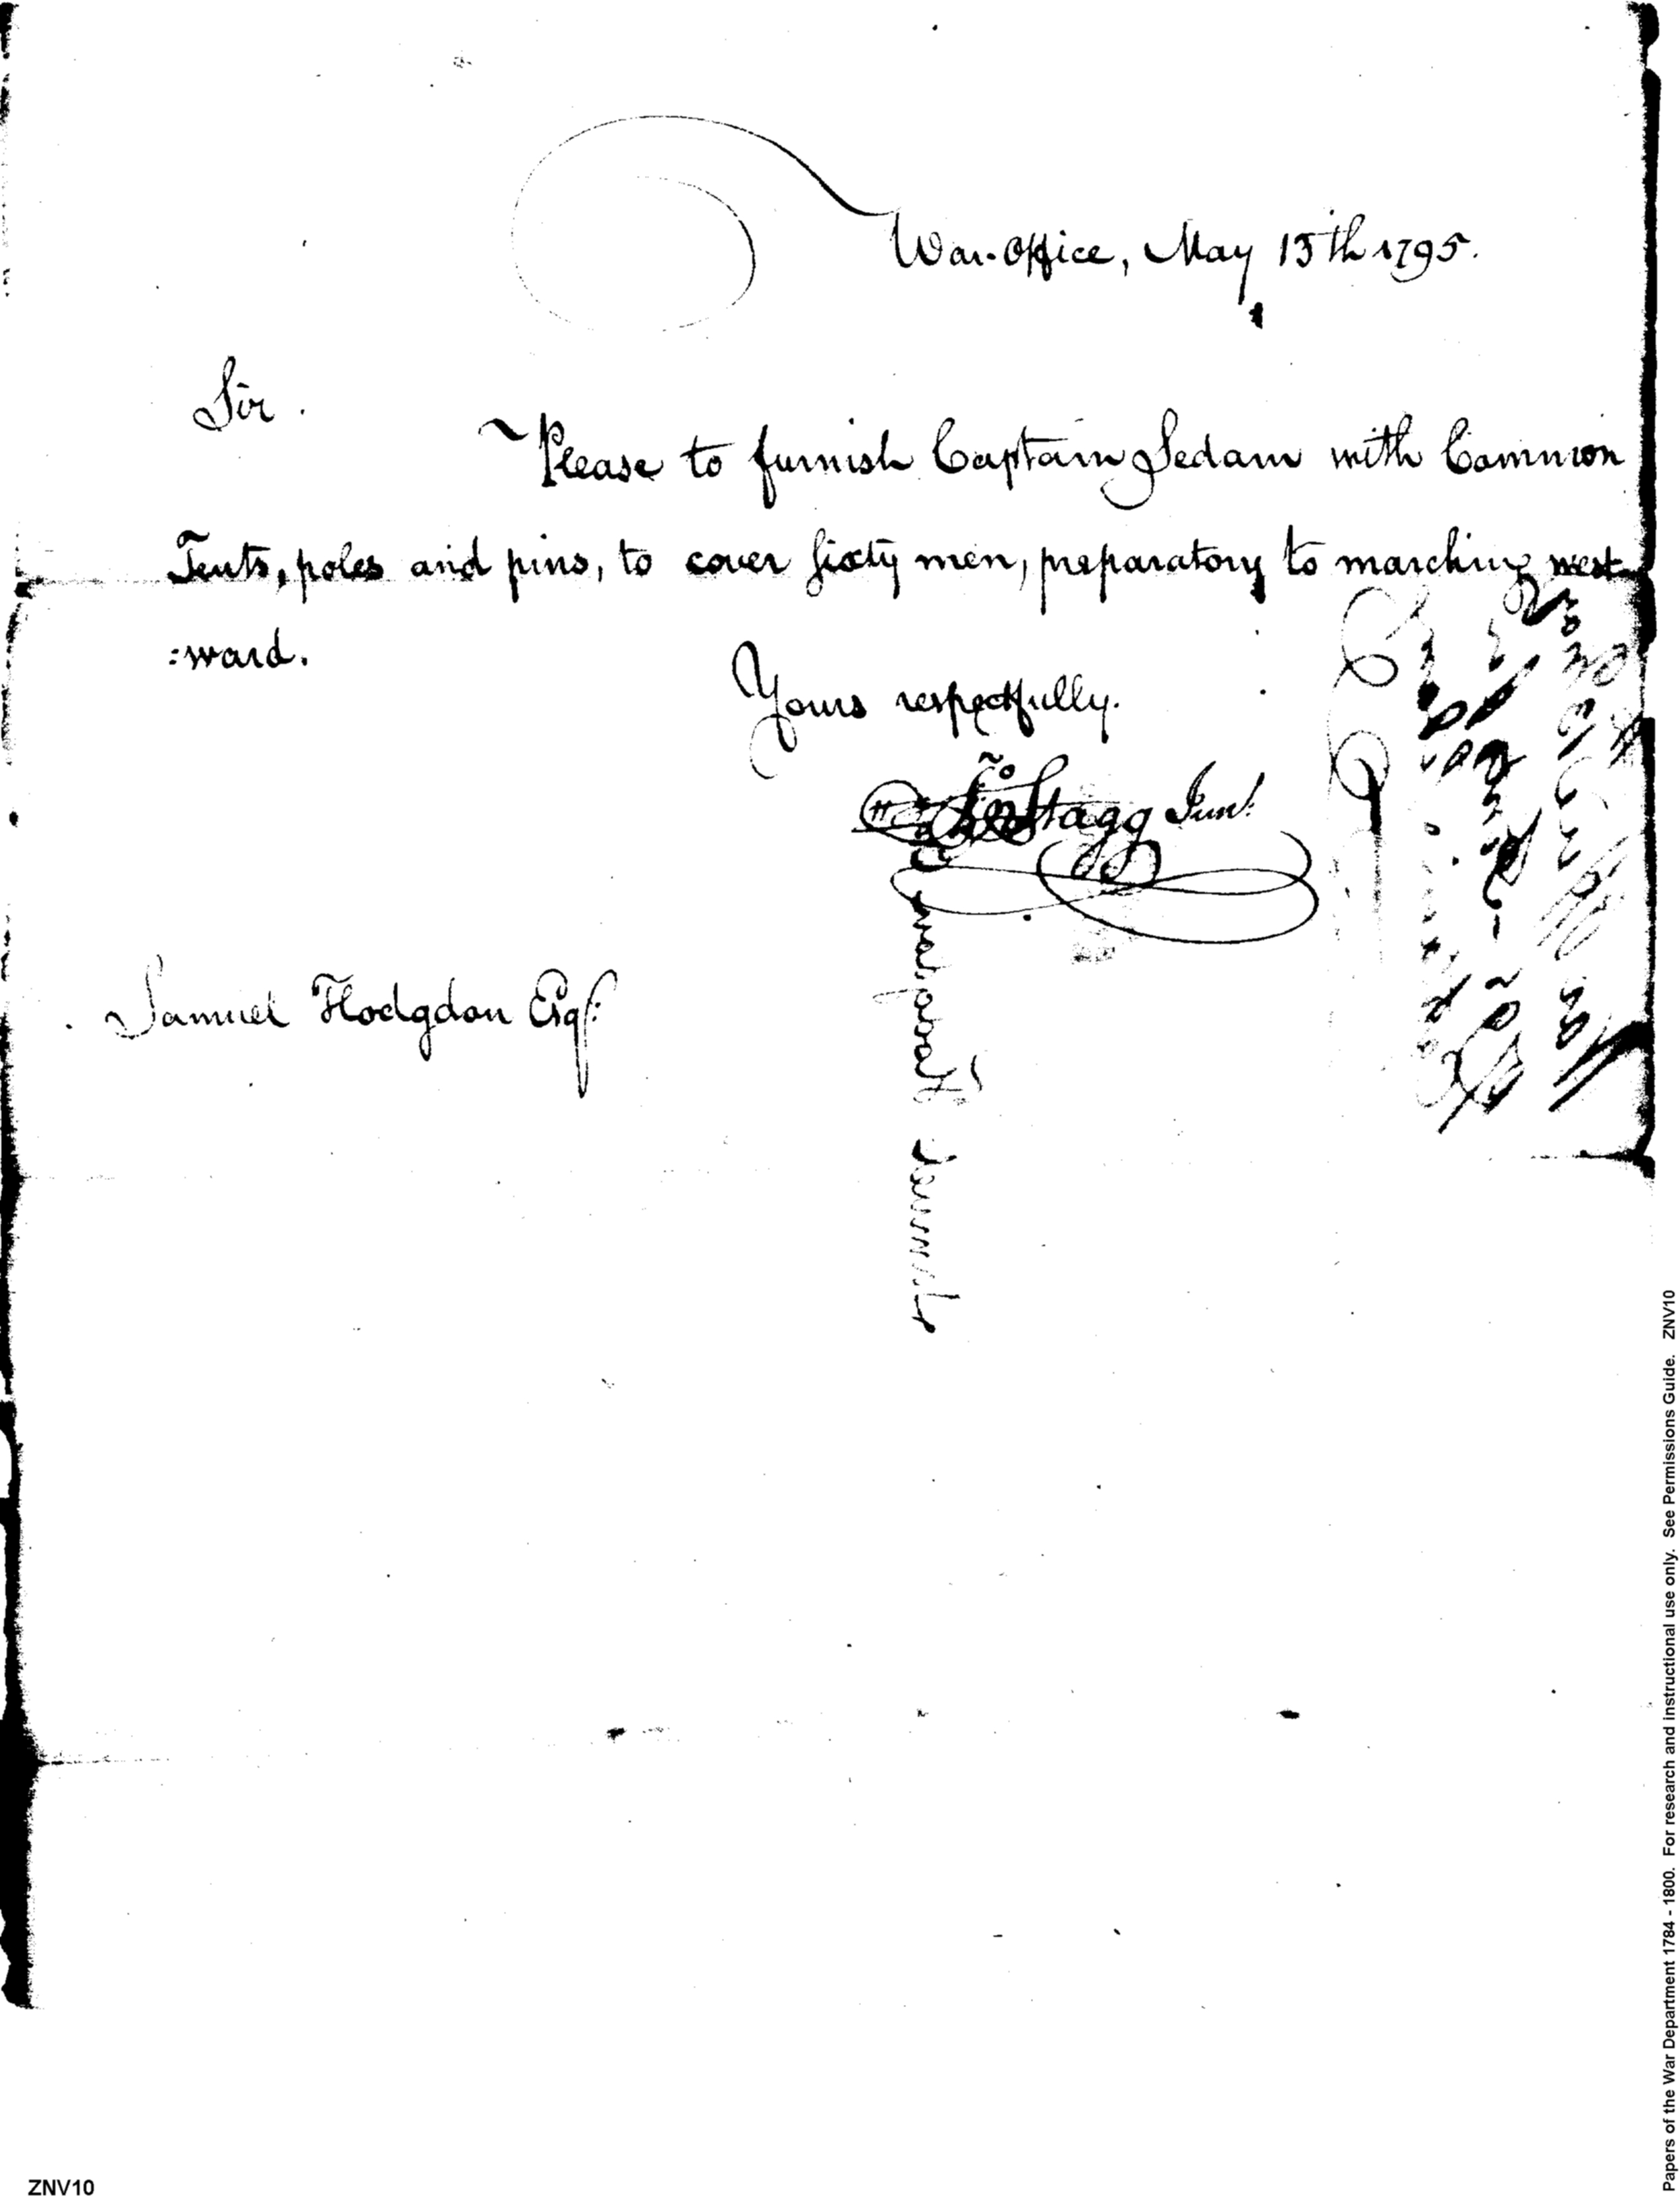 War-Office, May 15th 1795.
Sir.
Please to furnish Captain Sedam with Common
Tents, poles and pins, to cover sixty men, preparatory to marching west
:ward.
Yours respectfully.
Jno Stagg Junr.
Samuel Hodgdon Esqr:
Samuel
ZNV10
Papers of the War Department 1784 - 1800. For research and instructional use only. See Permissions Guide. ZNV10